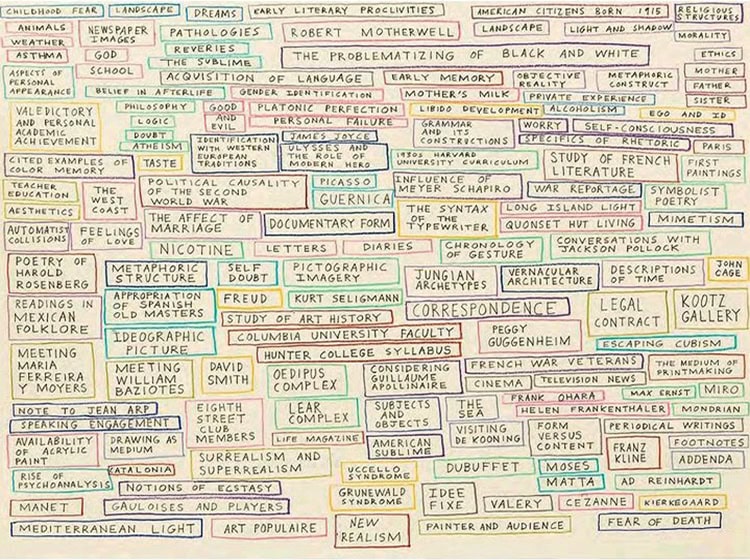 CHILDHOOD FEAR
LANDSCAPE
DREAMS
EARLY LITERARY PROCLIVITIES
AMERICAN CITIZENS BORN 1915
RELIGIOUS
STRUCTURES
ANIMALS
NEWSPAPER
IMAGES
PATHOLOGIES
ROBERT MOTHERWELL
LANDSCAPE
LIGHT AND SHADOW
MORALITY
WEATHER
REVERIES
ASTHMA
GOD
THE SUBLIME
THE PROBLEMATIZING OF BLACK AND WHITE
ETHICS
ASPECTS OF
PERSONAL
APPEARANCE
SCHOOL
ACQUISITION OF LANGUAGE
EARLY MEMORY
OBJECTIVE
REALITY
METAPHORIC
CONSTRUCT
MOTHER
BELIEF IN AFTERLIFE
GENDER IDENTIFICATION
MOTHER'S MILK
PRIVATE EXPERIENCE
FATHER
SISTER
VALEDICTORY
AND PERSONAL
ACADEMIC
ACHIEVEMENT
PHILOSOPHY
GOOD
AND
EVIL
PLATONIC PERFECTION
LIBIDO DEVELOPMENT
ALCOHOLISM
EGO AND ID
LOGIC
PERSONAL FAILURE
GRAMMAR
AND ITS
CONSTRUCTIONS
WORRY
SELF-CONSCIOUSNESS
DOUBT
IDENTIFICATION
WITH WESTERN
EUROPEAN
TRADITIONS
JAMES JOYCE
SPECIFICS OF RHETORIC
PARIS
ATHEISM
ULYSSES AND
THE ROLE OF
MODERN HERO
CITED EXAMPLES OF
COLOR MEMORY
TASTE
1930S HARVARD
UNIVERSITY CURRICULUM
STUDY OF FRENCH
LITERATURE
FIRST
PAINTINGS
TEACHER
EDUCATION
THE
WEST
COAST
POLITICAL CAUSALITY
OF THE SECOND
WORLD WAR
PICASSO
INFLUENCE OF
MEYER SCHAPIRO
WAR REPORTAGE
SYMBOLIST
POETRY
GUERNICA
AESTHETICS
THE AFFECT OF
MARRIAGE
DOCUMENTARY FORM
THE SYNTAX
OF THE
TYPEWRITER
LONG ISLAND LIGHT
MIMETISM
QUONSET HUT LIVING
AUTOMATIST
COLLISIONS
FEELINGS
OF LOVE
NICOTINE
LETTERS
DIARIES
CHRONOLOGY
OF GESTURE
CONVERSATIONS WITH
JACKSON POLLOCK
POETRY OF
HAROLD
ROSENBERG
METAPHORIC
STRUCTURE
SELF
DOUBT
PICTOGRAPHIC
IMAGERY
JUNGIAN
ARCHETYPES
VERNACULAR
ARCHITECTURE
DESCRIPTIONS
OF TIME
JOHN
CAGE
READINGS IN
MEXICAN
FOLKLORE
APPROPRIATION
OF SPANISH
OLD MASTERS
FREUD
KURT SELIGMANN
CORRESPONDENCE
LEGAL
CONTRACT
KOOTZ
GALLERY
STUDY OF ART HISTORY
IDEOGRAPHIC
PICTURE
COLUMBIA UNIVERSITY FACULTY
PEGGY
GUGGENHEIM
ESCAPING CUBISM
HUNTER COLLEGE SYLLABUS
MEETING
MARIA
FERREIRA
Y MOYERS
MEETING
WILLIAM
BAZIOTES
DAVID
SMITH
OEDIPUS
COMPLEX
CONSIDERING
GUILLAUME
APOLLINAIRE
FRENCH WAR VETERANS
THE MEDIUM OF
PRINTMAKING
CINEMA
TELEVISION NEWS
FRANK OHARA
MAX ERNST
MIRO
NOTE TO JEAN ARP
EIGHTH
STREET
CLUB
MEMBERS
LEAR
COMPLEX
SUBJECTS
AND
OBJECTS
THE
SEA
HELEN FRANKENTHALER
MONDRIAN
SPEAKING ENGAGEMENT
VISITING
DE KOONING
FORM
VERSUS
CONTENT
PERIODICAL WRITINGS
AVAILABILITY
OF ACRYLIC
PAINT
DRAWING AS
MEDIUM
LIFE MAGAZINE
AMERICAN
SUBLIME
FRANZ
KLINE
FOOTNOTES
SURREALISM AND
SUPERREALISM
ADDENDA
RISE OF
PSYCHOANALYSIS
CATALONIA
UCCELLO
SYNDROME
DUBUFFET
MOSES
NOTIONS OF ECSTASY
MATTA
AD REINHARDT
GRUNEWALD
SYNDROME
IDEE
FIXE
MANET
GAULOISES AND PLAYERS
VALERY
CEZANNE
KIERKEGAARD
MEDITERRANEAN LIGHT
ART POPULAIRE
NEW
REALISM
PAINTER AND AUDIENCE
FEAR OF DEATH